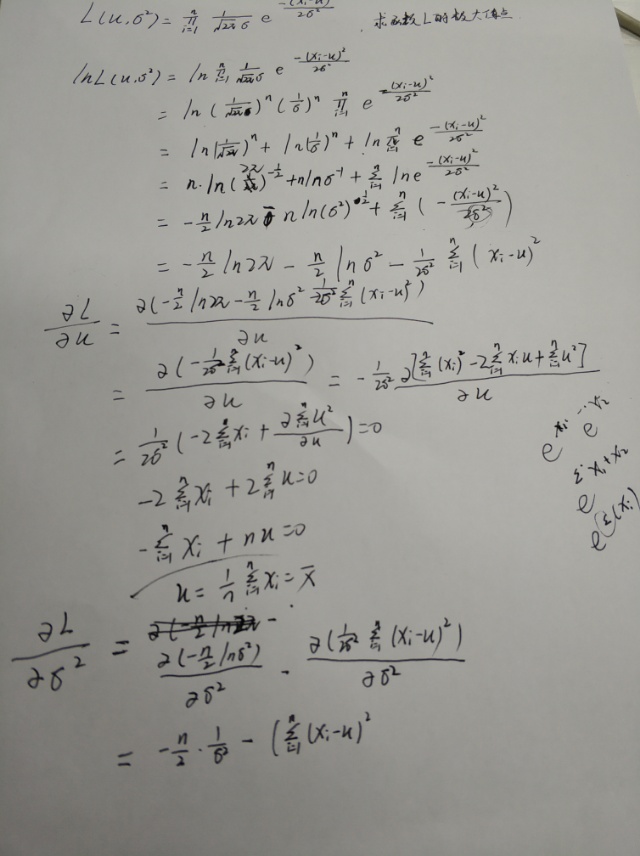 L(u,σ²) = ∏_{i=1}^{n} 1/(√2π σ) e^{-(xi-u)²/2σ²} 求函数L的极大值点.
lnL(u,σ²) = ln ∏_{i=1}^{n} 1/(√2π σ) e^{-(xi-u)²/2σ²}
= ln (1/√2π)^n (1/σ)^n ∏_{i=1}^{n} e^{-(xi-u)²/2σ²}
= ln(1/√2π)^n + ln(1/σ)^n + ln ∏_{i=1}^{n} e^{-(xi-u)²/2σ²}
= n·ln(2π)^{-1/2} + n lnσ^{-1} + Σ_{i=1}^{n} ln e^{-(xi-u)²/2σ²}
= -n/2 ln2π - n ln(σ²)^{1/2} + Σ_{i=1}^{n} (-(xi-u)²/2σ²)
= -n/2 ln2π - n/2 lnσ² - 1/2σ² Σ_{i=1}^{n} (xi-u)²
∂L/∂u = ∂(-n/2 ln2π - n/2 lnσ² 1/2σ² Σ_{i=1}^{n} (xi-u)²)/∂u
= ∂(-1/2σ² Σ_{i=1}^{n} (xi-u)²)/∂u = -1/2σ² ∂[Σ_{i=1}^{n} (xi)² - 2Σ_{i=1}^{n} xiu + Σ_{i=1}^{n} u²]/∂u
= 1/2σ² (-2Σ_{i=1}^{n} xi + ∂Σ_{i=1}^{n} u²/∂u) = 0
-2Σ_{i=1}^{n} xi + 2Σ_{i=1}^{n} u = 0
-Σ_{i=1}^{n} xi + nu = 0
u = 1/n Σ_{i=1}^{n} xi = x̄
∂L/∂σ² = ∂(-n/2 lnσ²)/∂σ² - ∂(1/2σ² Σ_{i=1}^{n} (xi-u)²)/∂σ²
= -n/2 · 1/σ² - (Σ_{i=1}^{n} (xi-u)²